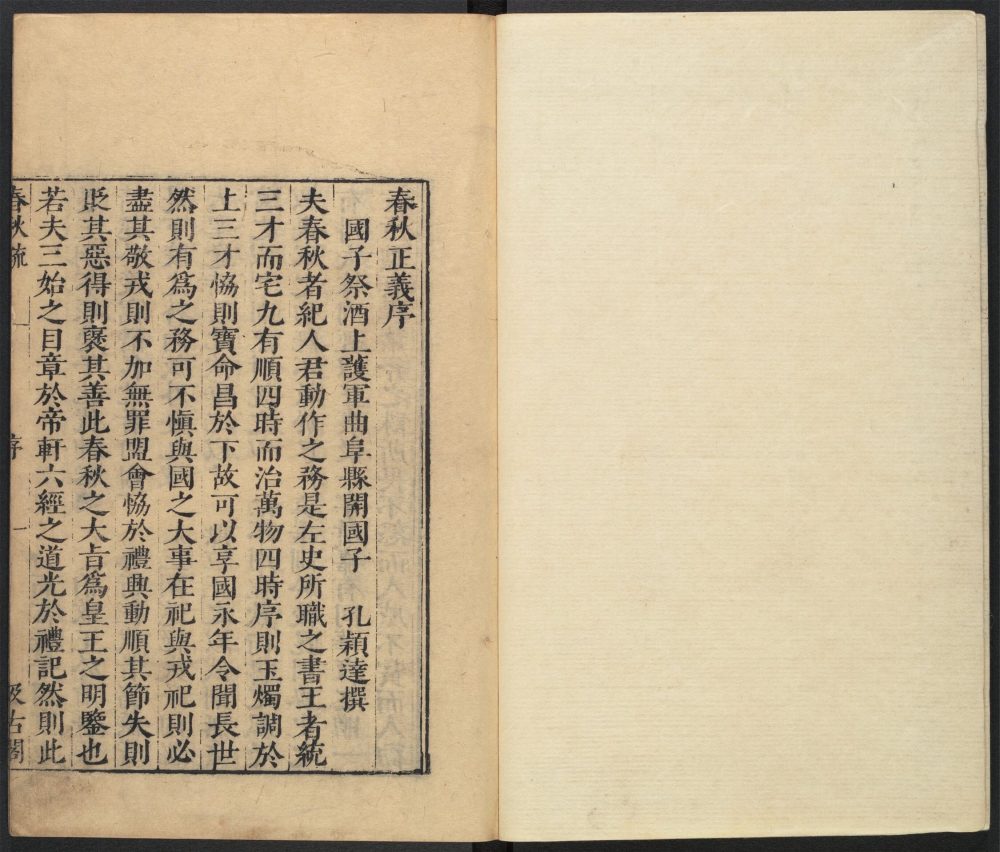 春秋正義序
國子祭酒上護軍曲阜縣開國子 孔穎達撰
夫春秋者紀人君動作之務是左史所職之書王者統
三才而宅九有順四時而治萬物四時序則玉燭調於
上三才恊則寶命昌於下故可以享國永年令聞長世
然則有爲之務可不愼與國之大事在祀與戎祀則必
盡其敬戎則不加無罪盟會恊於禮興動順其節失則
貶其惡得則襃其善此春秋之大旨爲皇王之明鑒也
若夫三始之目章於帝軒六經之道光於禮記然則此
春秋疏 序 一 汲古閣